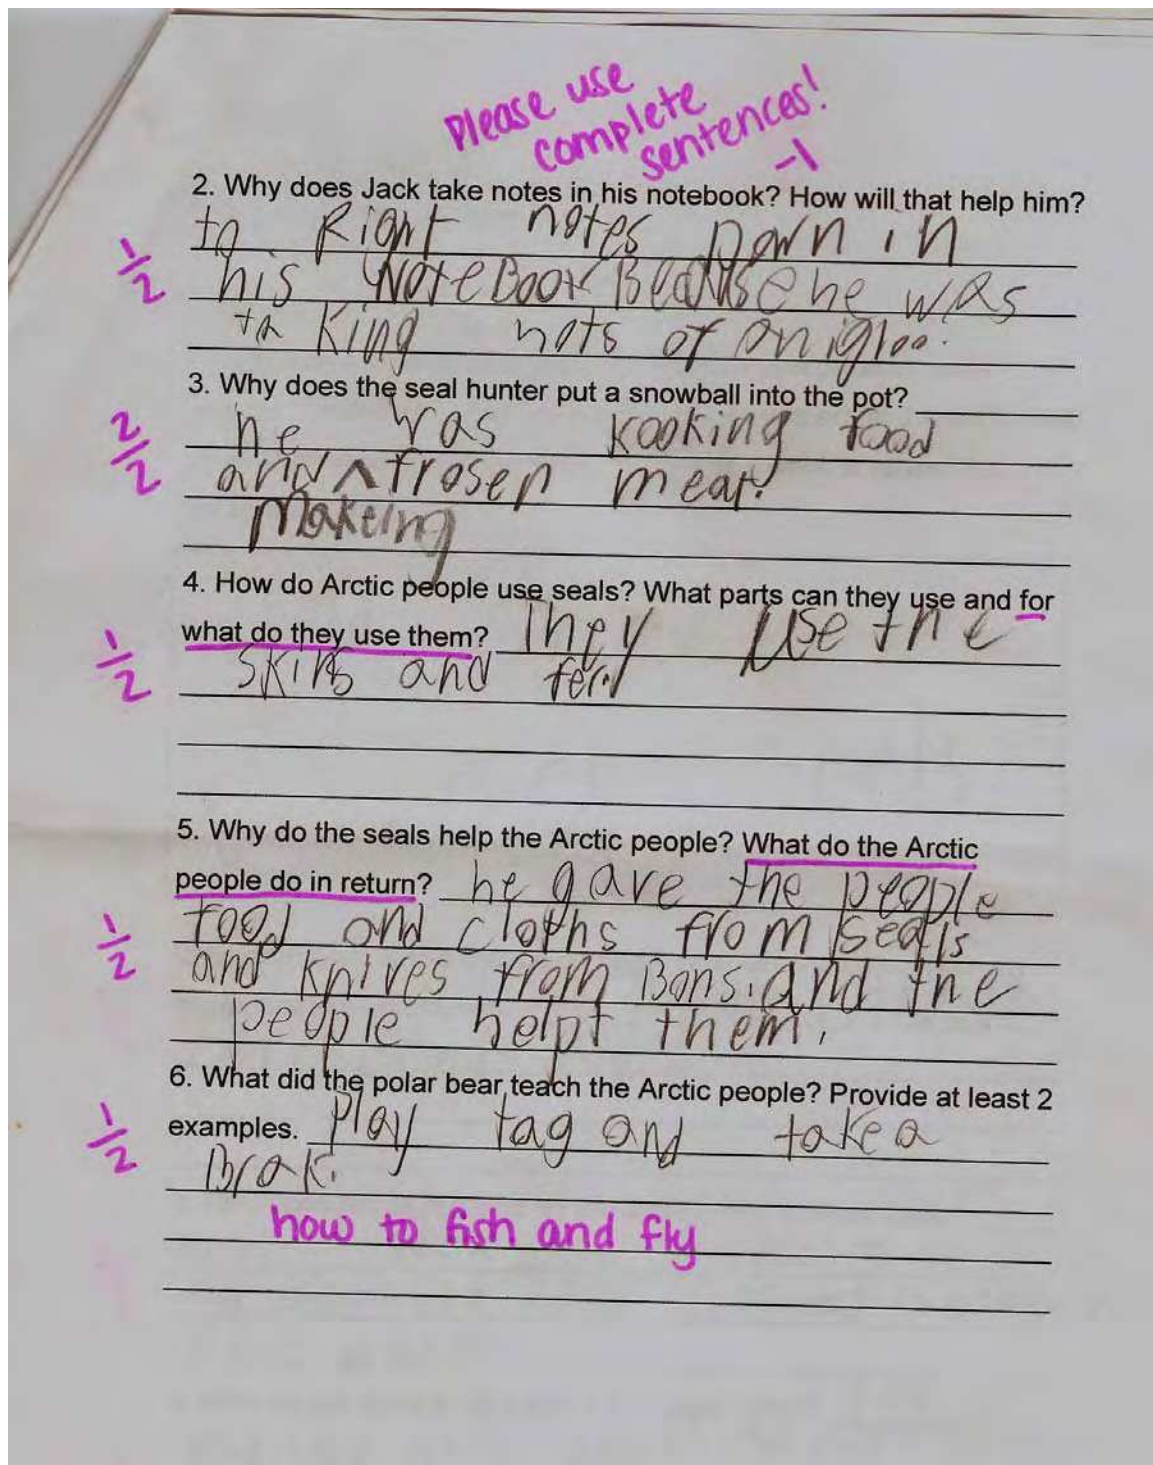 Please use
complete
sentences!
-1
2. Why does Jack take notes in his notebook? How will that help him?
to Right notes Down in
1/2
his NoteBook Because he was
taKing nots of an igloo.
3. Why does the seal hunter put a snowball into the pot?
he was kooking food
2/2
and ^ frosen meat.
Makeing
4. How do Arctic people use seals? What parts can they use and for
what do they use them? They use the
1/2
skins and
5. Why do the seals help the Arctic people? What do the Arctic
people do in return? he gave the people
food and cloths from seals
1/2
and knives from Bons. and the
people helpt them.
6. What did the polar bear teach the Arctic people? Provide at least 2
examples. Play tag and take a
1/2
Brak.
how to fish and fly